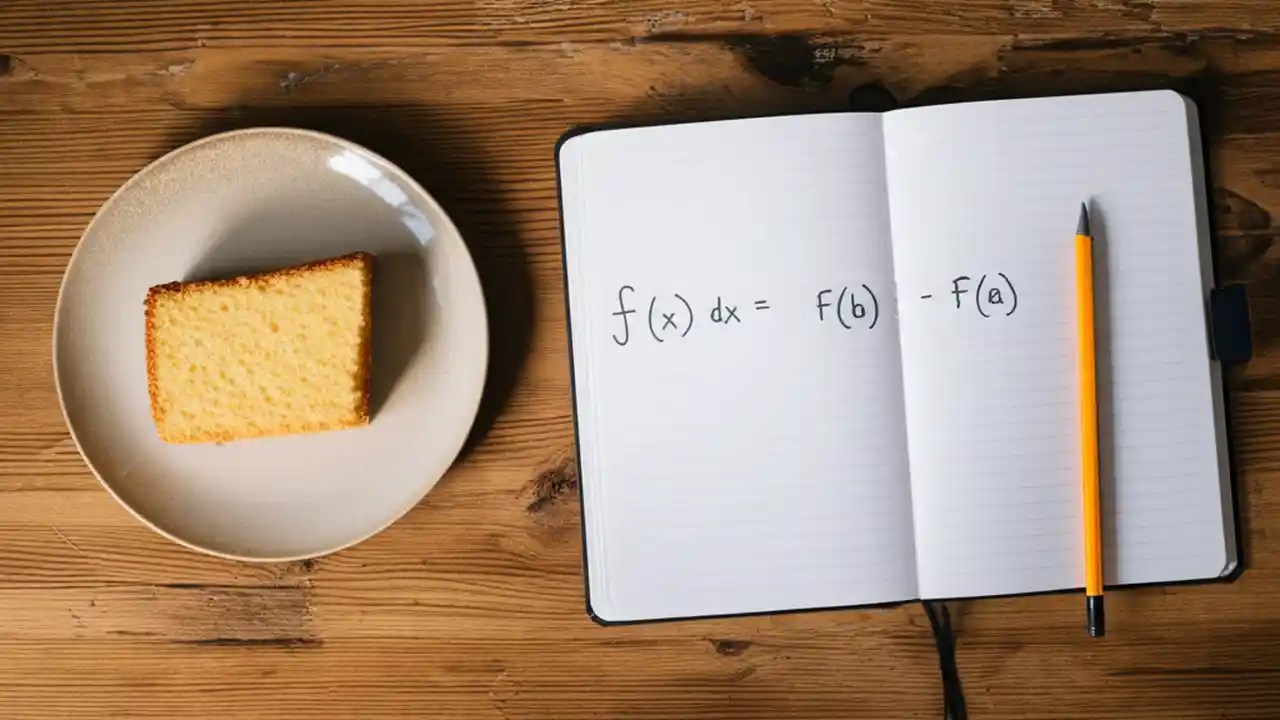 f(x) dx = F(b) - F(a)